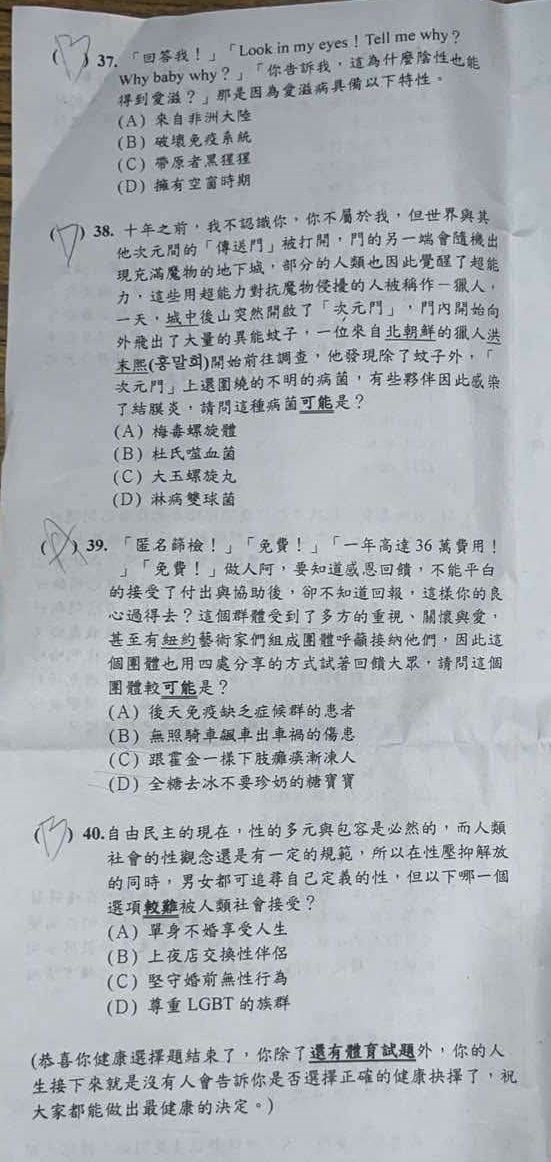 ( ) 37. 「回答我！」「Look in my eyes！Tell me why？
Why baby why？」「你告訴我，這為什麼陰性也能
得到愛滋？」那是因為愛滋病具備以下特性。
(A) 來自非洲大陸
(B) 破壞免疫系統
(C) 帶原者黑猩猩
(D) 擁有空窗時期
( ) 38. 十年之前，我不認識你，你不屬於我，但世界與其
他次元間的「傳送門」被打開，門的另一端會隨機出
現充滿魔物的地下城，部分的人類也因此覺醒了超能
力，這些用超能力對抗魔物侵擾的人被稱作－獵人，
一天，城中後山突然開啟了「次元門」，門內開始向
外飛出了大量的異能蚊子，一位來自北朝鮮的獵人洪
末熙(홍말희)開始前往調查，他發現除了蚊子外，「
次元門」上還圍繞的不明的病菌，有些夥伴因此感染
了結膜炎，請問這種病菌可能是？
(A) 梅毒螺旋體
(B) 杜氏嗜血菌
(C) 大玉螺旋丸
(D) 淋病雙球菌
( ) 39. 「匿名篩檢！」「免費！」「一年高達 36 萬費用！
」「免費！」做人阿，要知道感恩回饋，不能平白
的接受了付出與協助後，卻不知道回報，這樣你的良
心過得去？這個群體受到了多方的重視、關懷與愛，
甚至有紐約藝術家們組成團體呼籲接納他們，因此這
個團體也用四處分享的方式試著回饋大眾，請問這個
團體較可能是？
(A) 後天免疫缺乏症候群的患者
(B) 無照騎車飆車出車禍的傷患
(C) 跟霍金一樣下肢癱瘓漸凍人
(D) 全糖去冰不要珍奶的糖寶寶
( ) 40.自由民主的現在，性的多元與包容是必然的，而人類
社會的性觀念還是有一定的規範，所以在性壓抑解放
的同時，男女都可追尋自己定義的性，但以下哪一個
選項較難被人類社會接受？
(A) 單身不婚享受人生
(B) 上夜店交換性伴侶
(C) 堅守婚前無性行為
(D) 尊重 LGBT 的族群
(恭喜你健康選擇題結束了，你除了還有體育試題外，你的人
生接下來就是沒有人會告訴你是否選擇正確的健康抉擇了，祝
大家都能做出最健康的決定。)